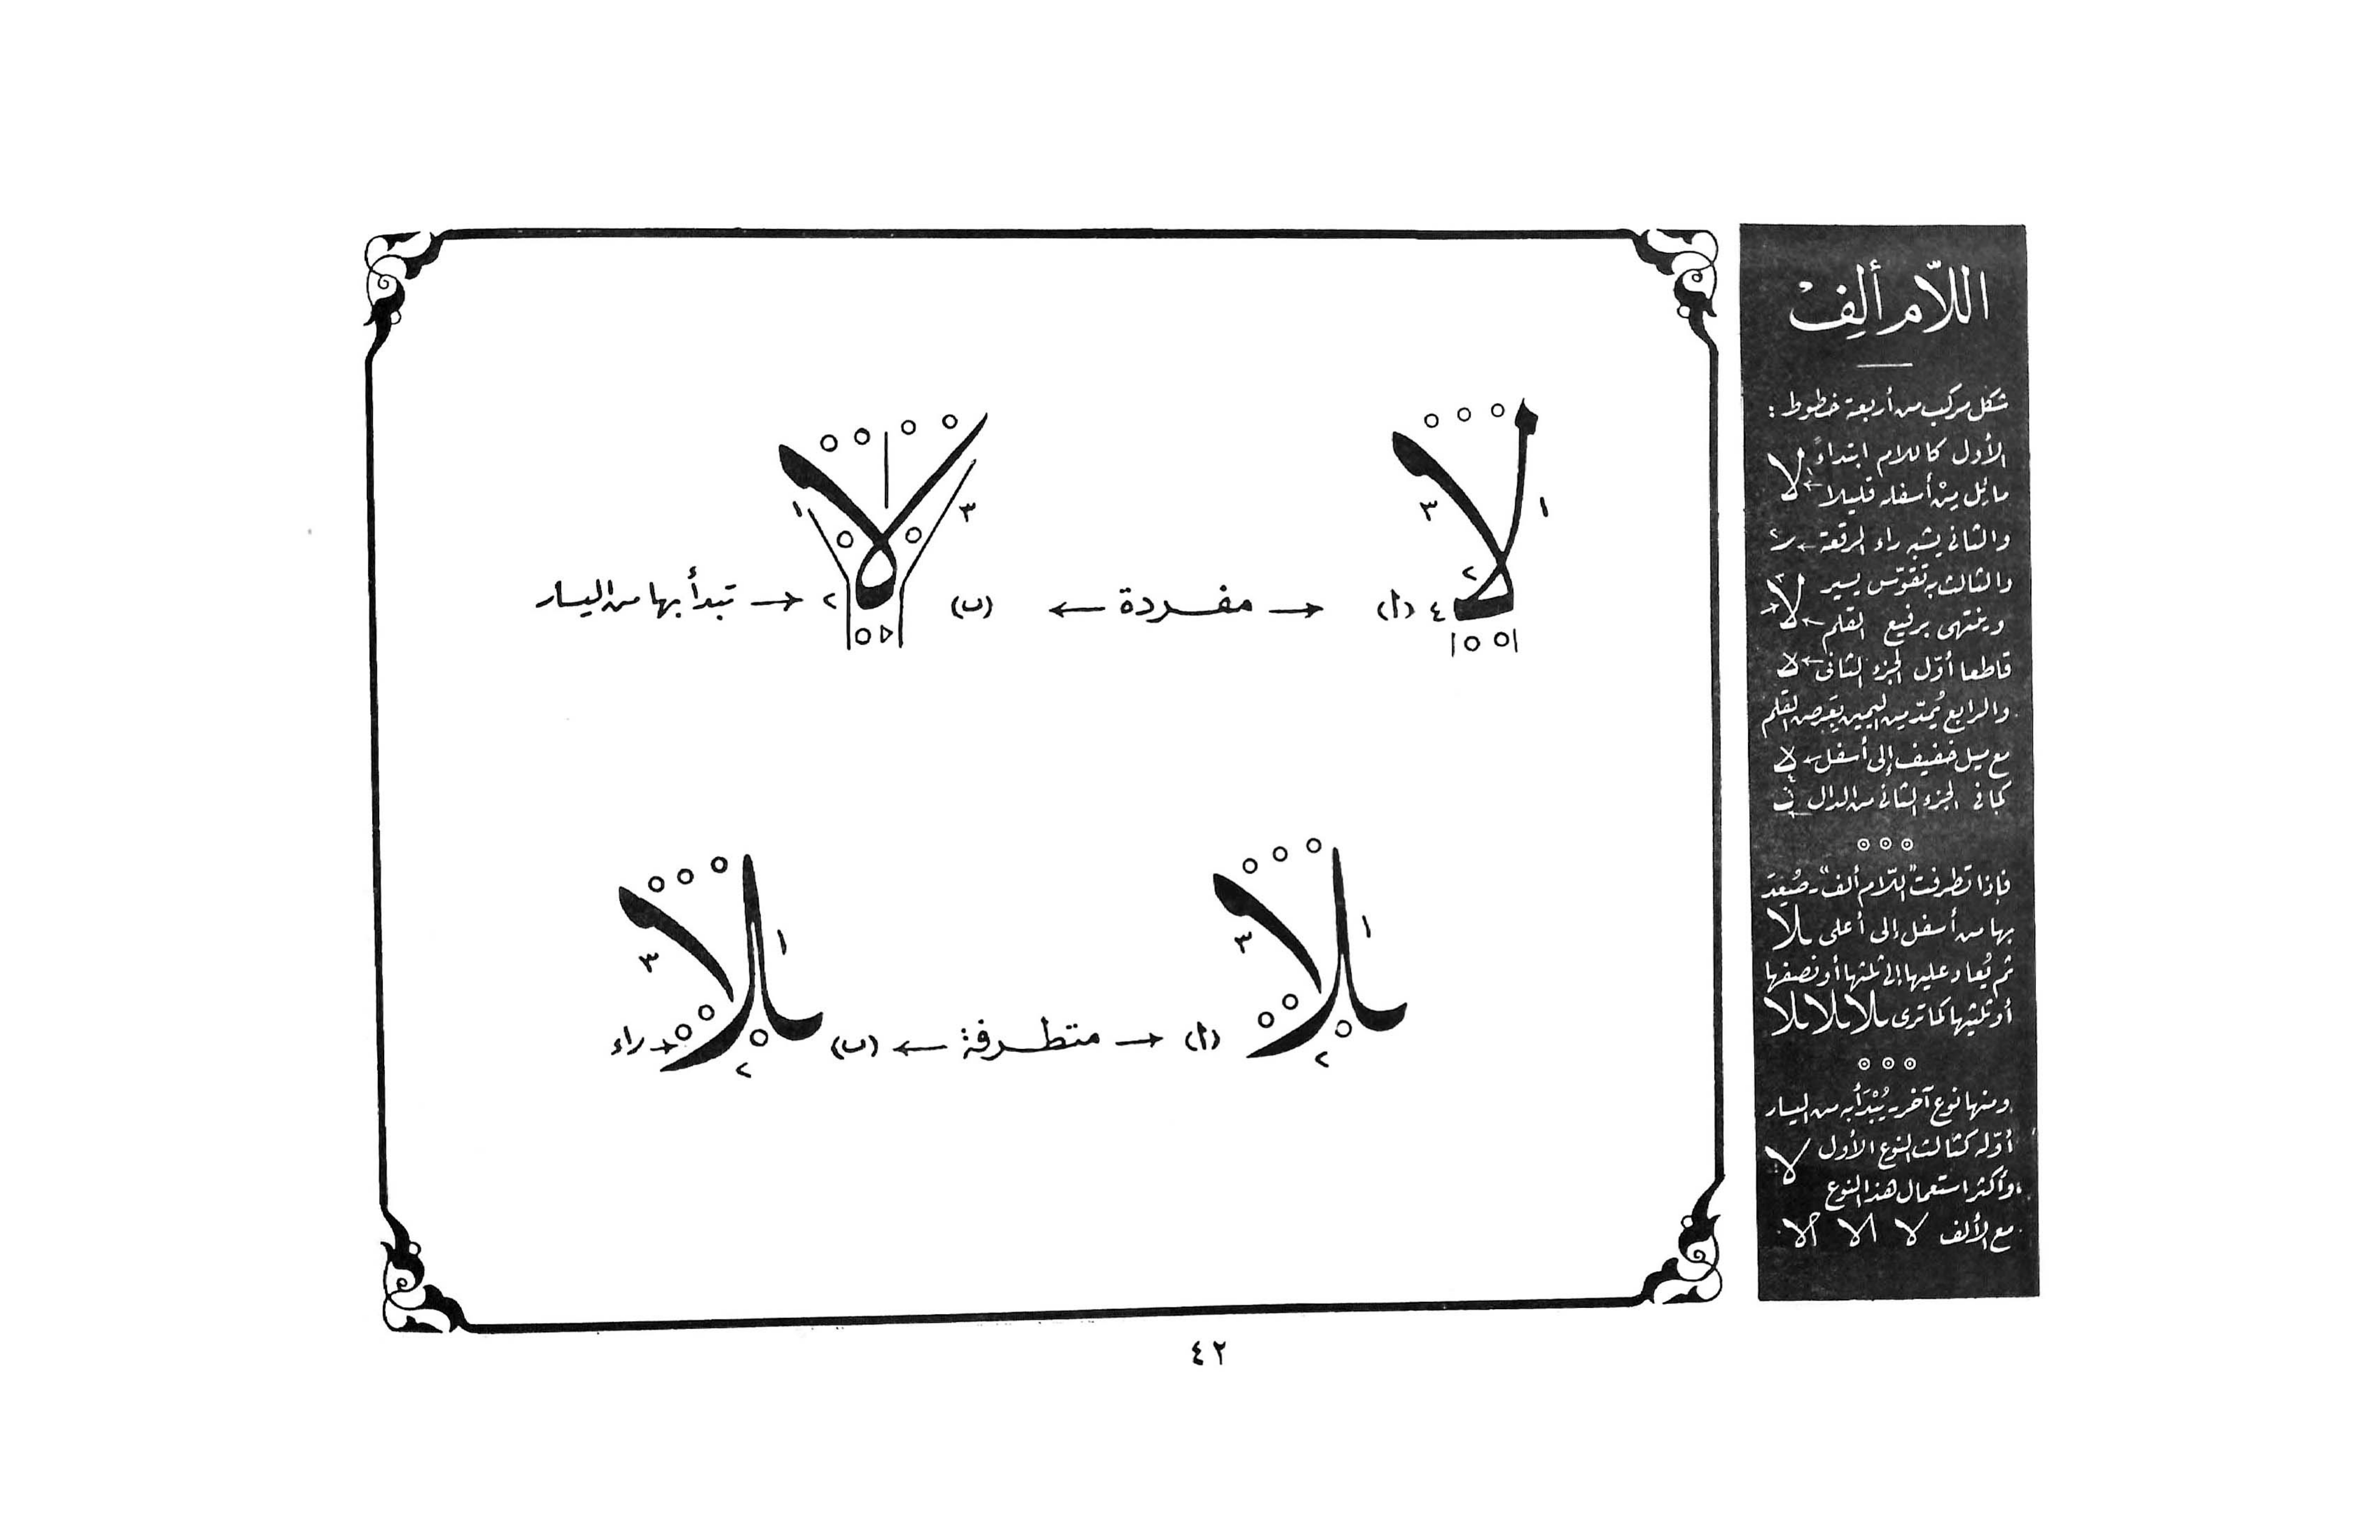 اللّام ألِفْ
شكل مركب من أربعة خطوط :
الأول كاللام ابتداءً
مائل مِنْ أسفله قليلا ← لا
والثانى يشبه راء الرقعة ← ر ٢
والثالث به تقوّس يسير
وينتهى برفيع القلم ← لا
قاطعا أوّل الجزء الثانى ← لا
والرابع يُمدّ من اليمين بعَرض القلم
مع ميل خفيف إلى أسفل ← لا ٤
كما فى الجزء الثانى من الدال
فإذا تطرفت "اللّام ألف" - صُعِدَ
بها من أسفل إلى أعلى ـلا
ثم يُعاد عليها إلى ثلثها أو نصفها
أو ثلثيها كما ترى ـلا ـلا ـلا
ومنها نوع آخر - يُبْدَأ به من اليسار
أوّله كثالث النوع الأول لا
وأكثر استعمال هذا النوع
مع الألف لا الا
لا ١ ٢ ٣ ٤ (أ) ← مفردة → (ب) لا ١ ٢ ٣ ← تبدأ بها من اليسار
ـلا ١ ٢ ٣ (أ) ← متطرفة → (ب) ـلا ١ ٢ ٣ ← راء
٤٢